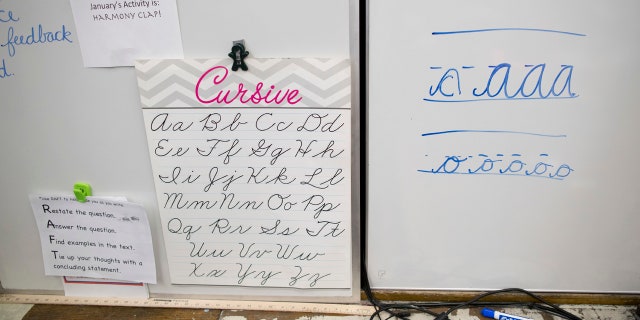 ce
feedback
d.
January's Activity is:
HARMONY CLAP!
Cursive
Aa Bb Cc Dd
Ee Ff Gg Hh
Ii Jj Kk Ll
Mm Nn Oo Pp
Qq Rr Ss Tt
Uu Vv Ww
Xx Yy Zz
Restate the question.
Answer the question.
Find examples in the text.
Tie up your thoughts with a
concluding statement.
a a a a
o o o o o